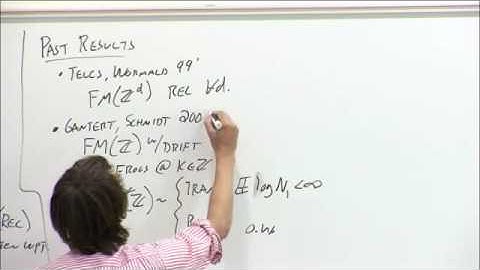 PAST RESULTS
• TELCS, WORMALD 99'
FM(ℤᵈ) REC ∀d.
• GANTERT, SCHMIDT 200
FM(ℤ) w/DRIFT
FROGS @ K∈ℤ
(ℤ) ~ { TRAN 𝔼 log N₁ < ∞
0.w
REC)
WPT.